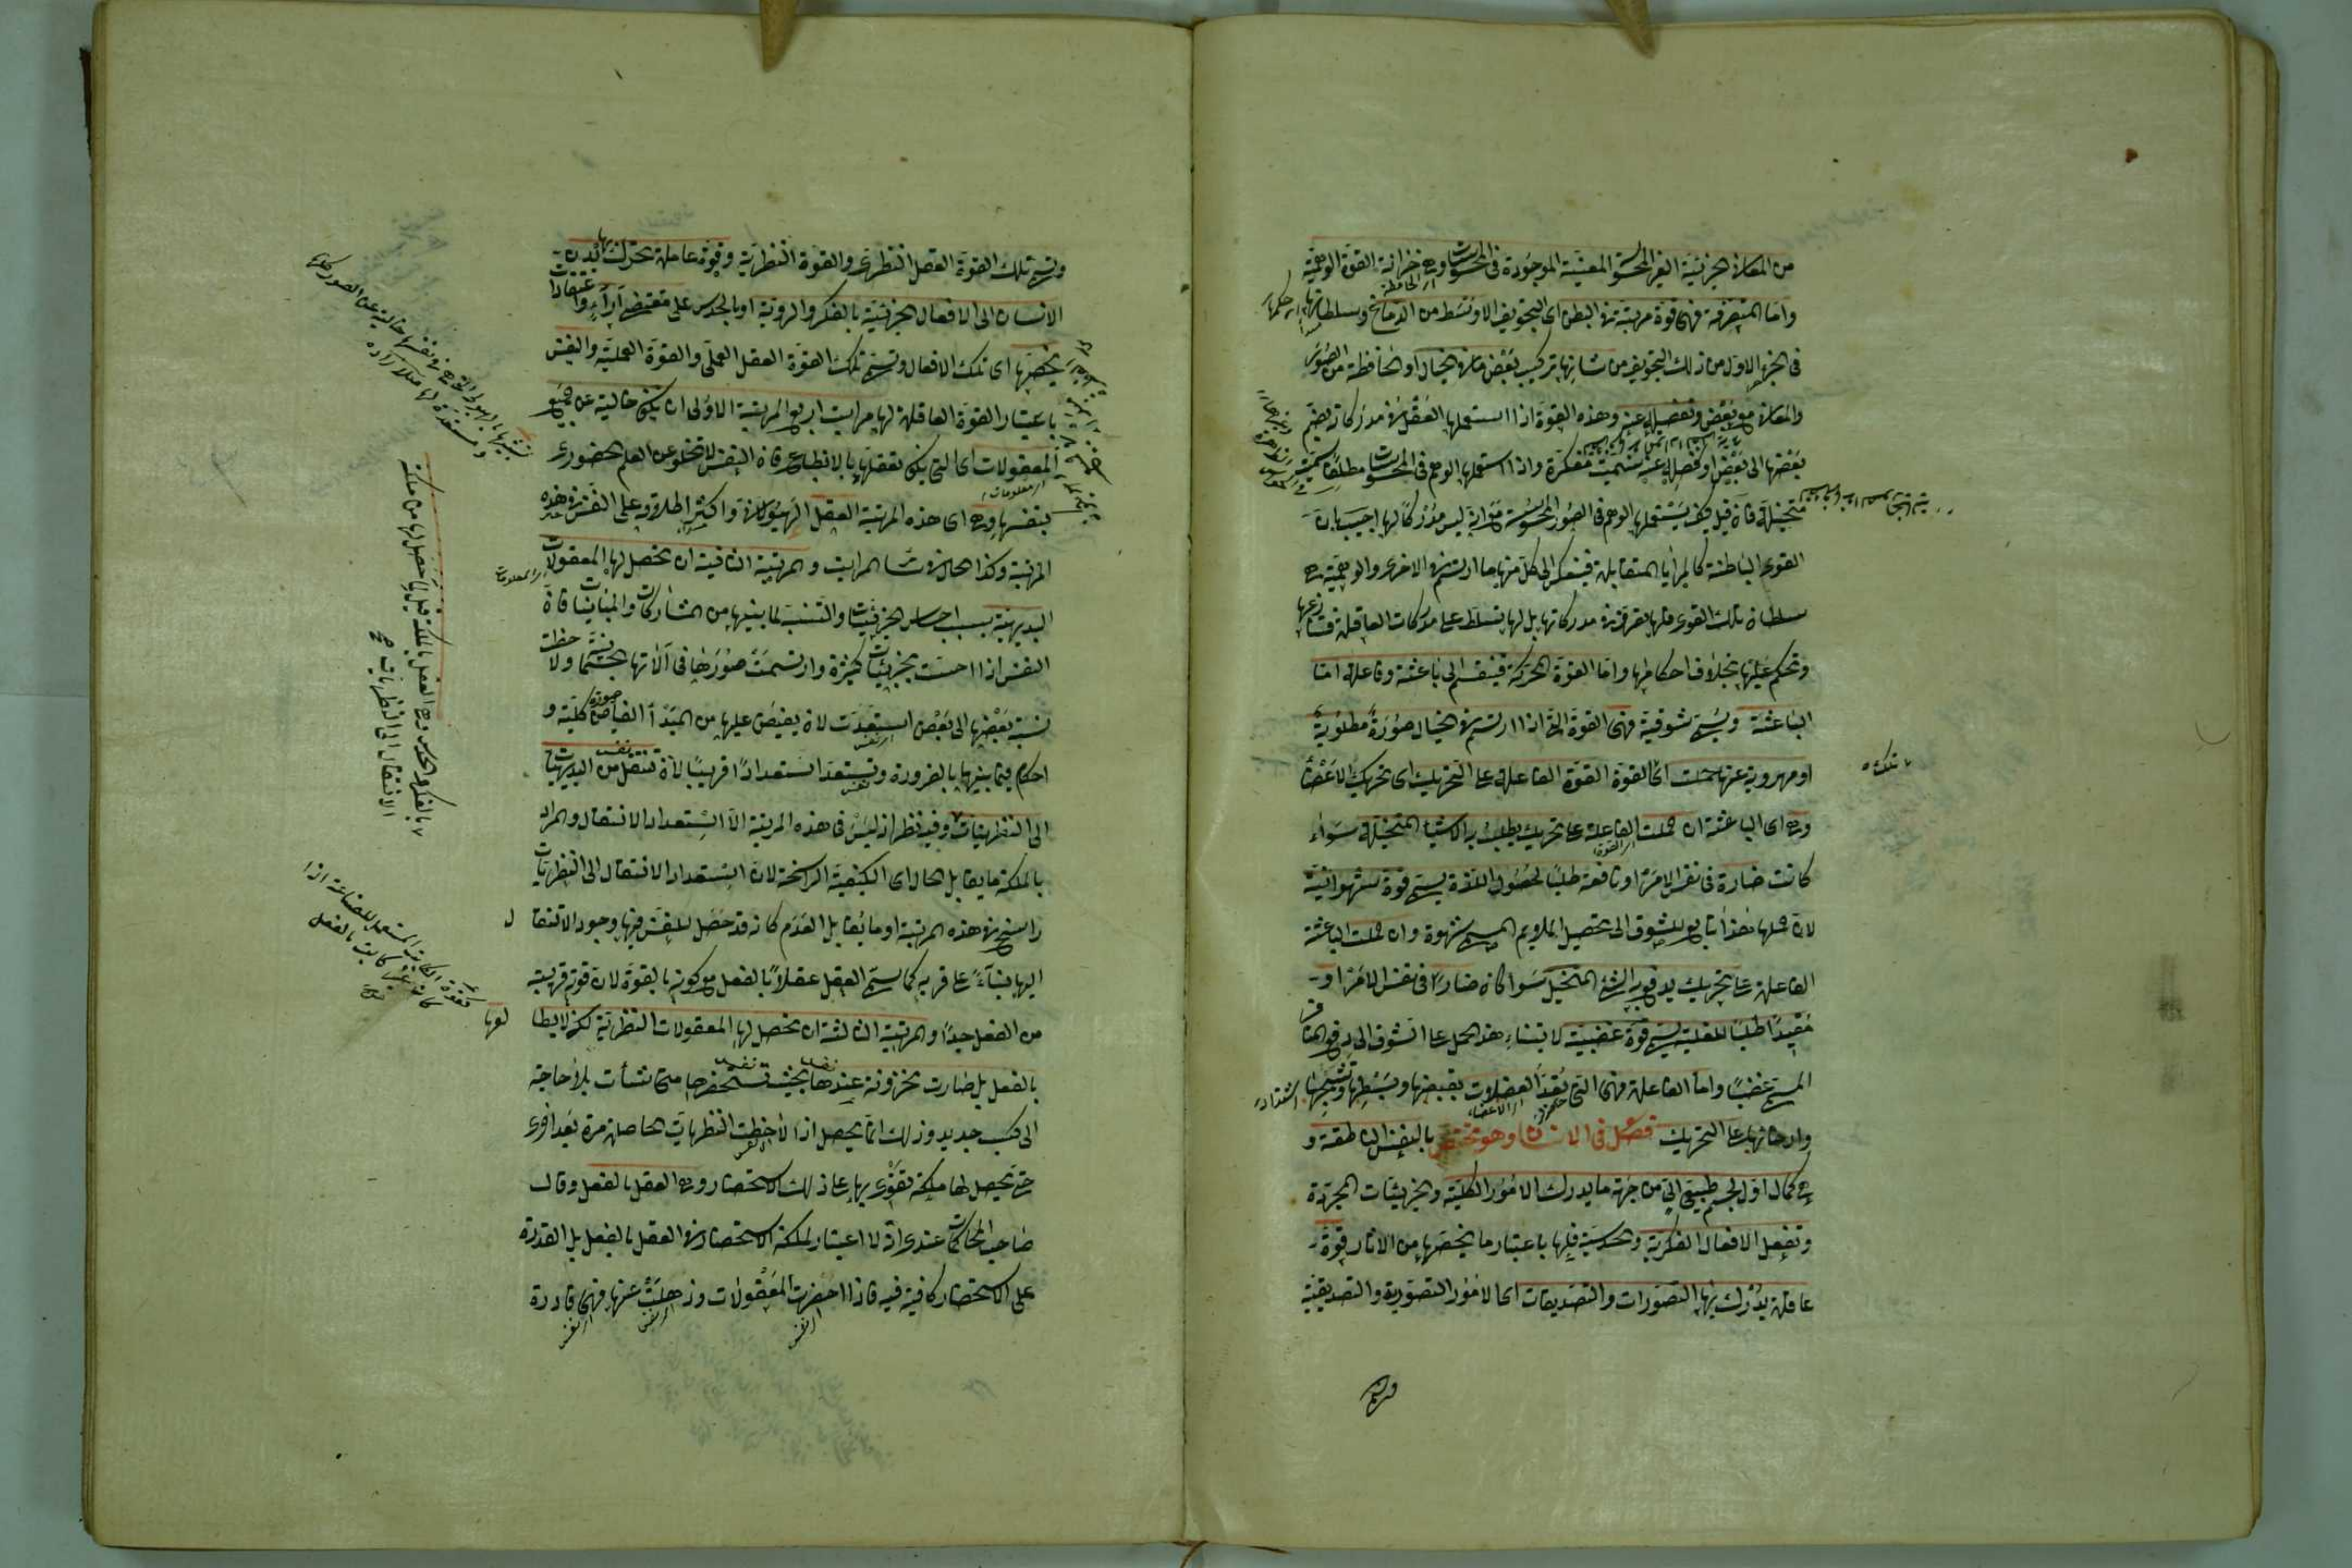 من المعاني الجزئية الغير المحسوسة المعينة الموجودة في المحسوسات وهي خزانة القوة الوهمية
واما المتصرفة فهي قوة مرتبة في البطن اى التجويف الاوسط من الدماغ وسلطانها
في الجزء الاول من ذلك التجويف من شانها تركيب بعض ما في الخيال او الحافظة من الصور
والمعاني مع بعض وتفصيله عنه وهذه القوة اذا استعملها العقل في مدركاته بضم
بعضها الى بعض او فصله عنه سميت مفكرة واذا استعملها الوهم في المحسوسات مطلقا سميت
متخيلة فان قيل كيف يستعملها الوهم في الصور المحسوسة مع انه ليس مدركا لها اجيب بان
القوى الباطنة كالمرايا المتقابلة فينعكس الى كل منها ما ارتسم في الاخرى والوهمية هي
سلطان تلك القوى فلها تصرف في مدركاتها بل لها تسلط على مدركات العاقلة فتنازعها
وتحكم عليها بخلاف احكامها واما القوة المحركة فينقسم الى باعثة وفاعلة اما
الباعثة ويسمى شوقية فهي القوة التي اذا ارتسم في الخيال صورة مطلوبة
او مهروبة عنها حملت اى القوة القوة الفاعلة على التحريك اى تحريك الاعضا
وهي اى الباعثة ان حملت الفاعلة على تحريك يطلب به الاشيا المتخيلة سواء
كانت ضارة في نفس الامر او نافعة طلبا لحصول اللذة يسمى قوة شهوانية
لان حملها هذا تابع للشوق الى تحصيل الملايم المسمى شهوة وان حملت الباعثة
الفاعلة على تحريك يدفع به الشئ المتخيل سوا كان ضارا في نفس الامر او
مفيدا طلبا للغلبة يسمى قوة غضبية لابتناء هذا الحمل على الشوق الى دفع المنافر
المسمى غضبا واما الفاعلة فهي التي تعد العضلات بقبضها وبسطها وتشنيجها
وارخائها على التحريك فصل في الانسان وهو مختص بالنفس الناطقة و
هي كمال اول لجسم طبيعي الى من جهة ما يدرك الامور الكلية والجزئيات المجردة
وتفعل الافعال الفكرية والحدسية فلها باعتبار ما يخصها من الاثار قوة
عاقلة يدرك بها التصورات والتصديقات اى الامور التصورية والتصديقية
ويسمى تلك القوة العقل النظرى والقوة النظرية وقوة عاملة تحرك بها بدن
الانسان الى الافعال الجزئية بالفكر والروية او بالحدس على مقتضى آراء واعتقادات
يخصها اى تلك الافعال وتسمى تلك القوة العقل العملي والقوة العملية والنفس
باعتبار القوة العاقلة لها مراتب اربع المرتبة الاولى ان يكون خالية عن جميع
المعقولات اى التي يكون تعقلها بالانطباع فان النفس لا تخلو عن العلم الحضورى
بنفسها وهي اى هذه المرتبة العقل الهيولاني واكثر اطلاقه على النفس في هذه
المرتبة وكذا الحال في سائر المراتب والمرتبة الثانية ان تحصل لها المعقولات
البديهية بسبب احساس الجزئيات والتنبه لما بينها من المشاركات والمباينات فان
النفس اذا احست بجزئيات كثيرة وارتسمت صورها في آلاتها الجسمانية ولاحظت
نسبة بعضها الى بعض استعدت لان يفيض عليها من المبدأ الفياض صورة كلية و
احكام فيما بينها بالضرورة وتستعد استعدادا قريبا لان تنتقل من البديهيات
الى النظريات وفيه نظر اذ ليس في هذه المرتبة الا استعداد الانتقال والمراد
بالملكة ما يقابل الحال اى الكيفية الراسخة لان استعداد الانتقال الى النظريات
راسخ في هذه المرتبة او ما يقابل العدم كانه قد حصل للنفس فيها وجود الانتقال
اليها بناء على قربه كما يسمى العقل عقلا بالفعل مع كونه بالقوة لان قوته قريبة
من الفعل جدا والمرتبة الثالثة ان تحصل لها المعقولات النظرية لكن لا يطالعها
بالفعل بل صارت مخزونة عندها بحيث تستحضرها متى شاءت بلا حاجة
الى كسب جديد وذلك انما يحصل اذا لاحظت النظريات الحاصلة مرة بعد اخرى
حتى تحصل لها ملكة تقوى بها على ذلك الاستحضار وهي العقل بالفعل وقال
صاحب المحاكمات عندى ان لا اعتبار لملكة الاستحضار في العقل بالفعل بل القدرة
على الاستحضار كافية فيه فاذا احضرت المعقولات وذهلت عنها فهي قادرة
بالفكر والحدس وهي العقل بالملكة قيل لما حصل لها من ملكة
الانتقال الى النظريات